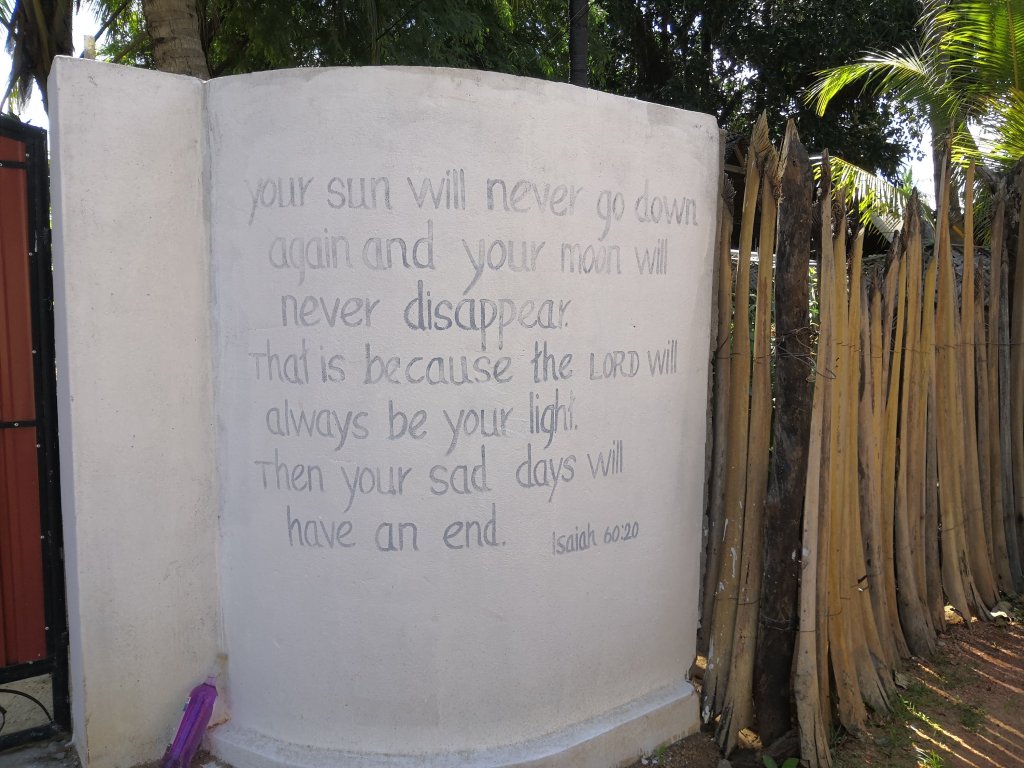 your sun will never go down
again and your moon will
never disappear.
That is because the LORD will
always be your light.
Then your sad days will
have an end.
Isaiah 60:20